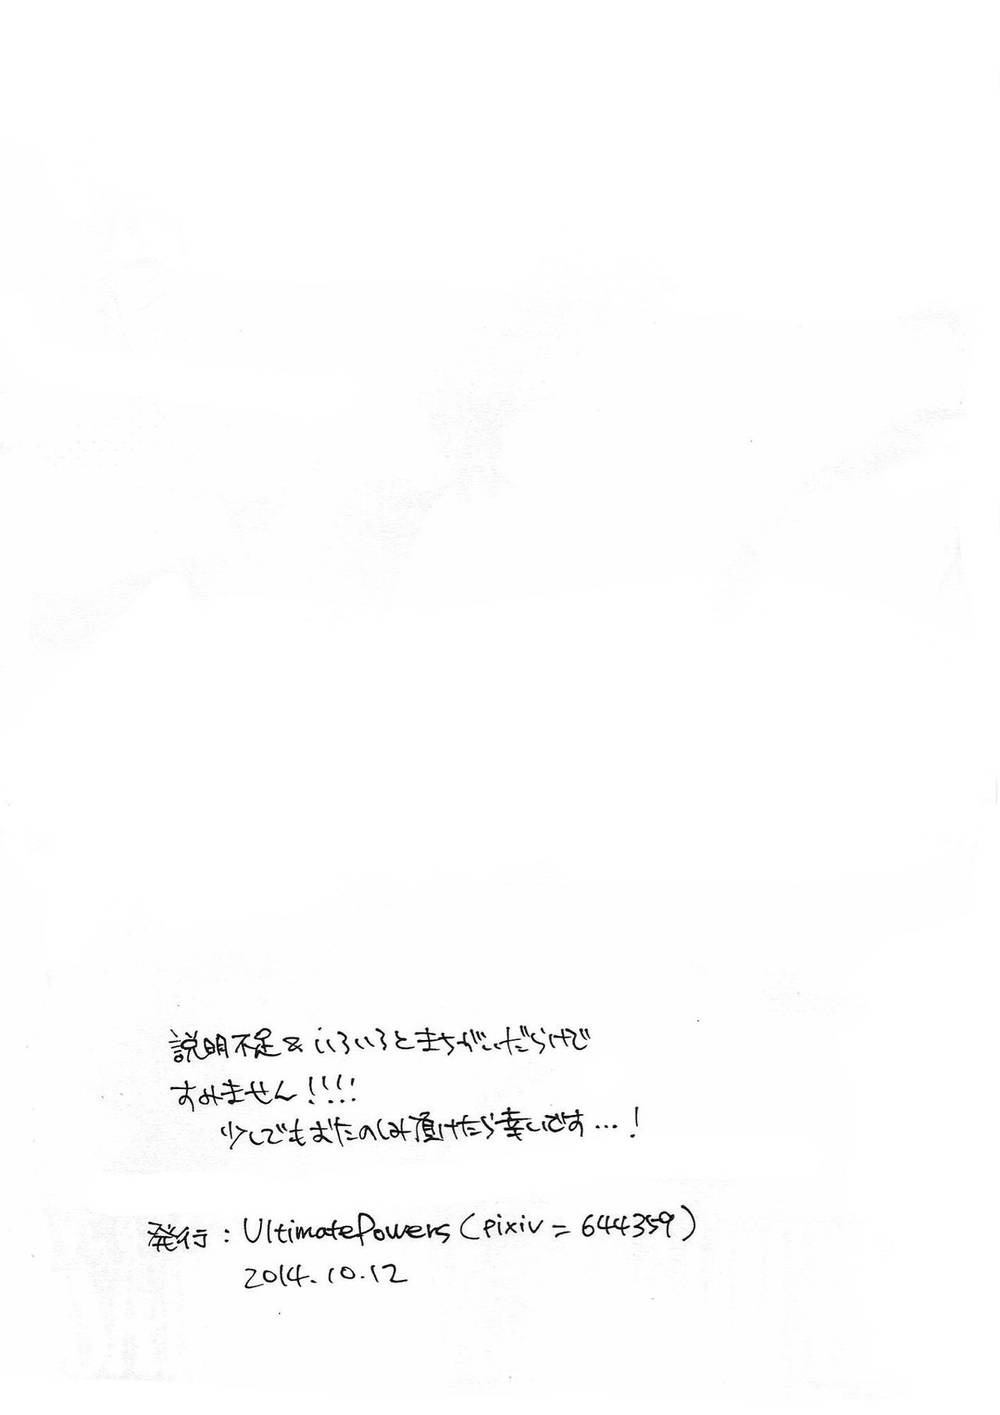 説明不足&いろいろとまちがいだらけで
すみません!!!!
少しでもおたのしみ頂けたら幸いです…!
発行:UltimatePowers(pixiv=644359)
2014.10.12